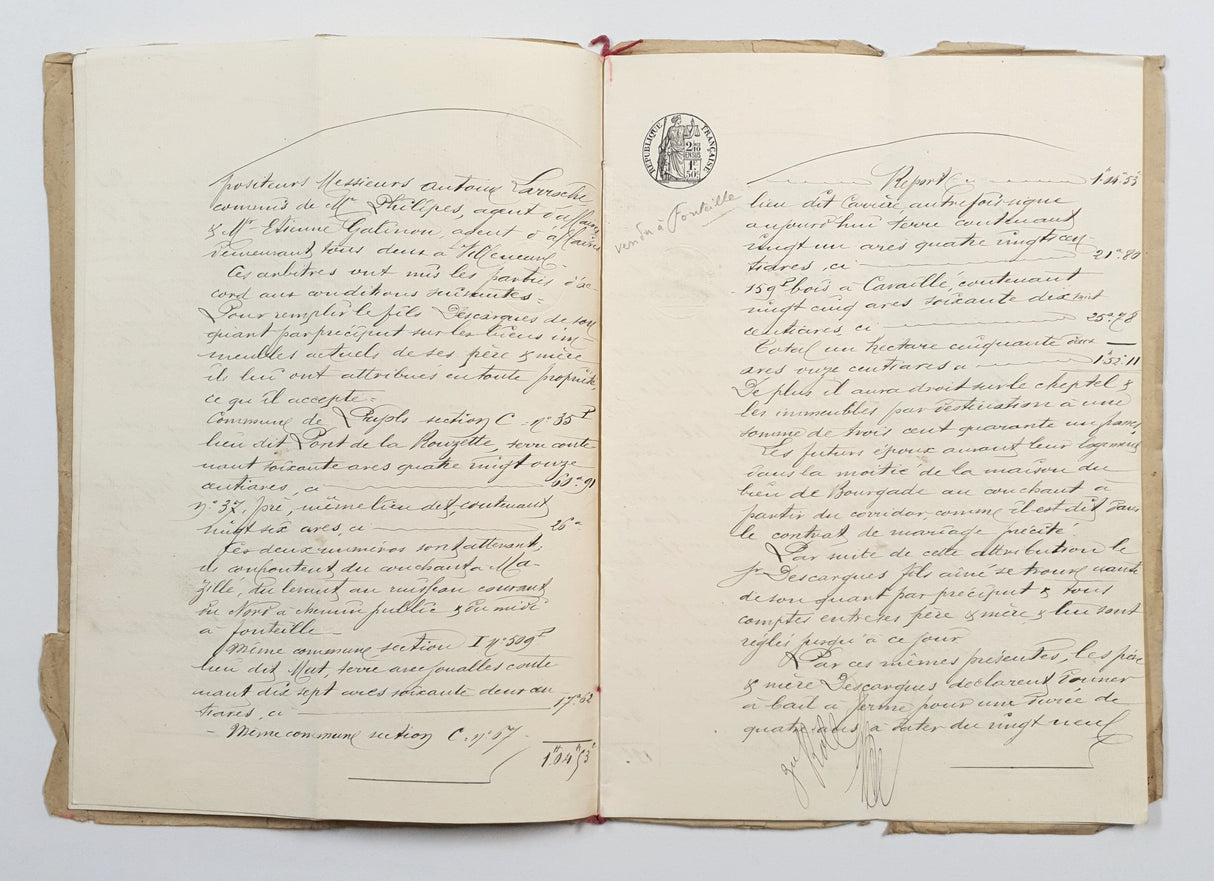 positeurs Messieurs antoine Larroche
commis de Mr Philipes, agent d'affaires
& Mr Etienne Galinou, agent d'affaires
demeurant tous deux à Villeneuve
Ces arbitres ont mis les parties d'ac
cord aux conditions suivantes =
Pour remplir le fils Descargues de son
quart par préciput sur les biens im-
meubles actuels de ses père & mère
ils lui ont attribués en toute propriété
ce qu'il accepte =
Commune de Pujols section C = n° 35P
lieu dit Pont de la Rouzette, terre conte
nant soixante ares quatre vingt onze
centiares, ci 60a 91
n° 37. pré, même lieu dit, contenant
vingt six ares, ci 26a
Ces deux numéros sont attenant,
ils confrontent du couchant à Ma-
zillé, du levant au ruisseau courant
du Nord à chemin public & du midi
à fonteille -
Même commune section I n° 509P
lieu dit Mut, terre avec joualles conte
nant dix sept ares soixante deux cen
tiares, ci 17a 62
- Même commune section C = n° 57
1h 04a 53c
RÉPUBLIQUE FRANÇAISE
2/10 EN SUS
1F 50c
vendu à Fonteille
Report 1h 04a 53c
lieu dit Cavière autrefois vigne
aujourd'hui terre contenant
vingt un ares quatre vingts cen
tiares, ci 21a 80
159P bois à Cavaillé, contenant
vingt cinq ares soixante dix huit
centiares ci 25a 78
Total un hectare cinquante deux
ares onze centiares 1h 52a 11
De plus il aura droit sur le cheptel &
les immeubles par destination à une
somme de trois cent quarante un francs
Les futurs époux auront leur logement
dans la moitié de la maison du
bien de Bourgade au couchant à
partir du corridor comme il est dit dans
le contrat de mariage précité
Par suite de cette attribution le
sr Descargues fils aîné se trouve nanti
de son quart par préciput & tous
comptes entre ses père & mère & lui sont
réglés jusqu'à ce jour
Par ces mêmes présentes, les père
& mère Descargues déclarent donner
à bail à ferme pour une durée de
quatre ans à dater du vingt neuf